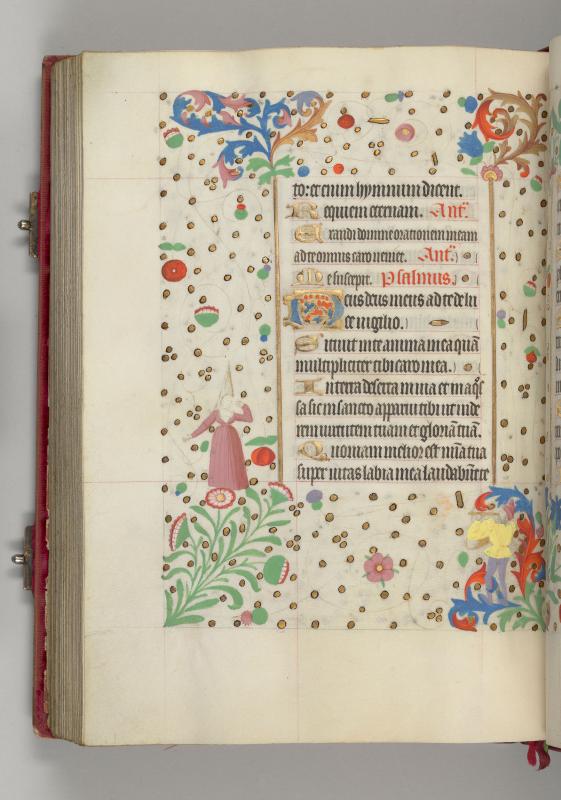 to: et enim hymnum dicent.
Requiem eternam. Ant.
Exaudi domine orationem meam
ad te omnis caro veniet. Ant.
Me suscepit. Psalmus.
Deus deus meus ad te de lu
ce vigilo.
Sitiuit in te anima mea quā
multipliciter tibi caro mea.
In terra deserta inuia et in aq̄
sa sic in sancto apparui tibi ut vide
rem uirtutem tuam et gloriā tuā.
Quoniam melior est mīa tua
super uitas labia mea laudabūt te